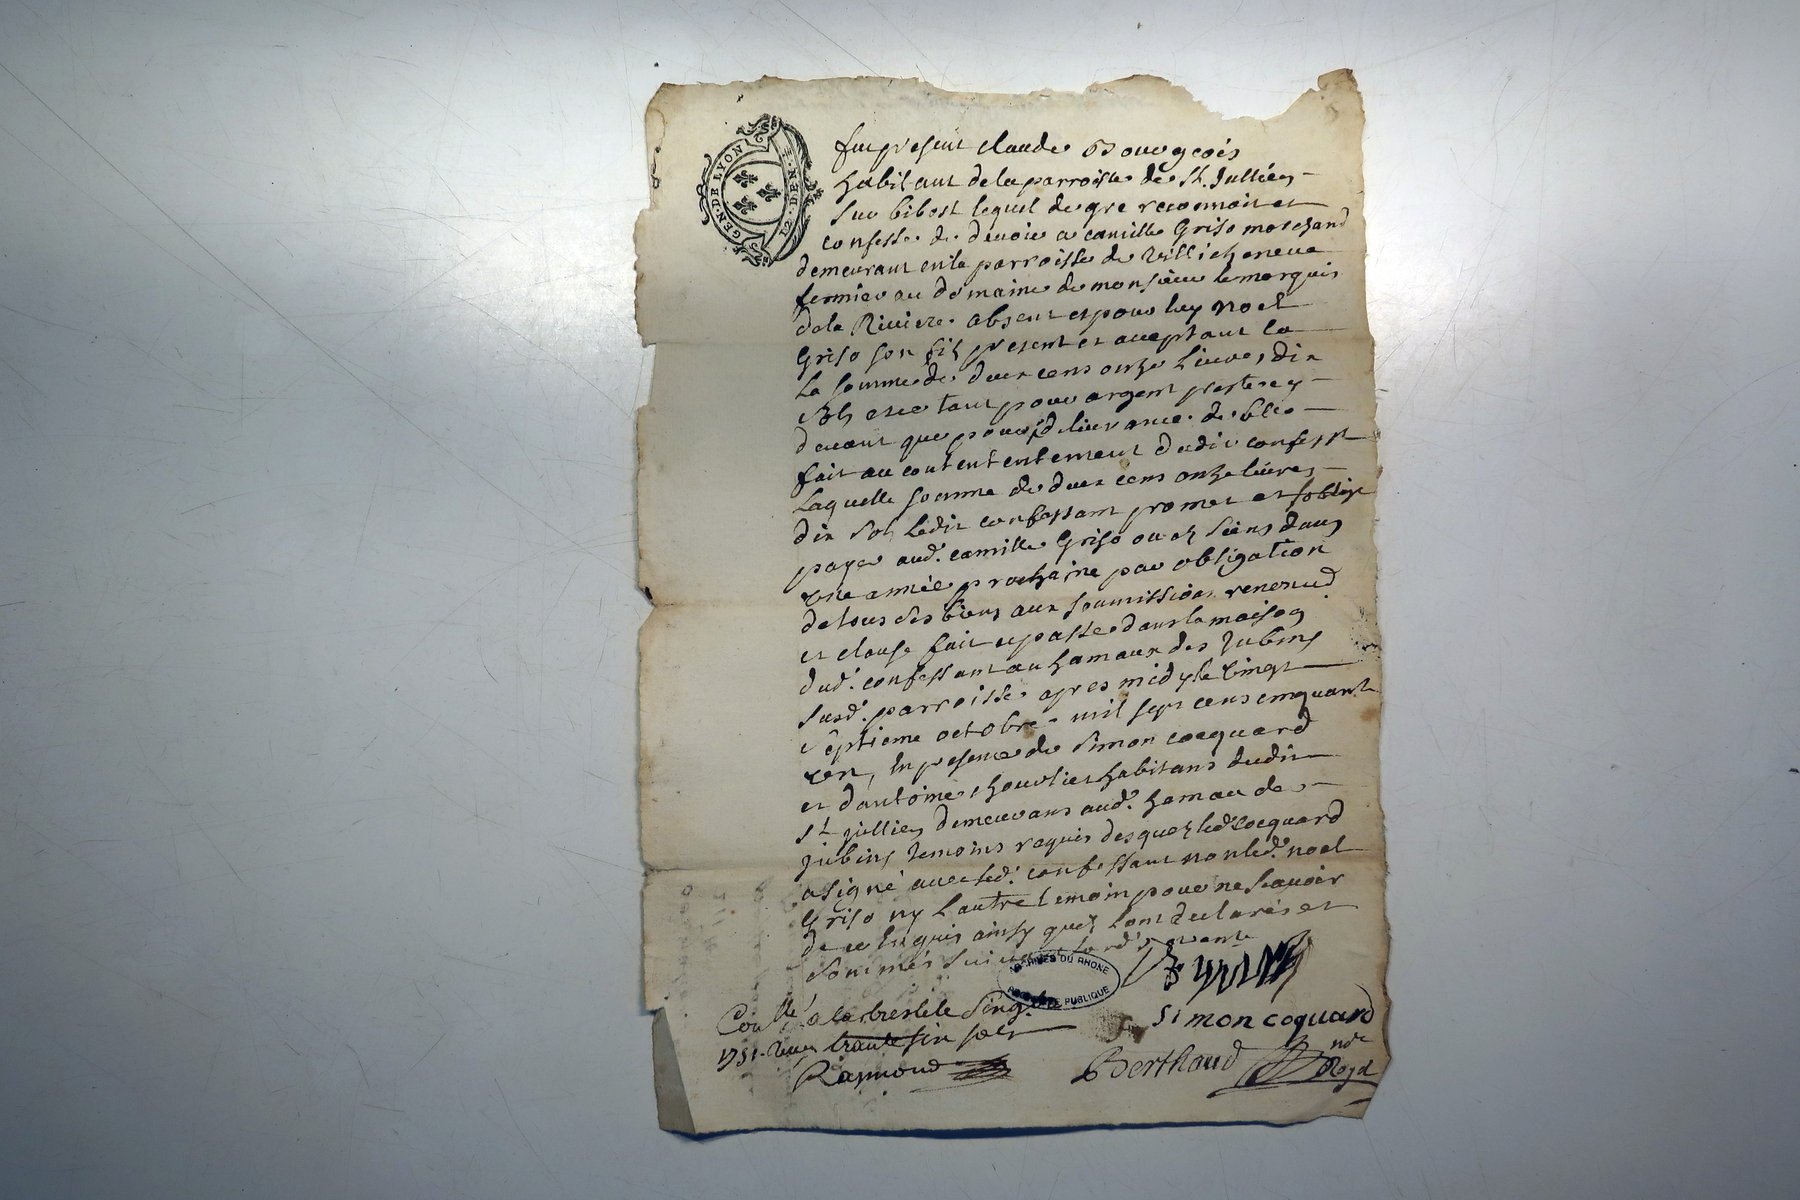 GEN. DE LYON
12. DEN. E.
fut present claude Bourgeois
habitant de la parroisse de St. Jullien
sur bibost lequel de gre reconnoit et
confesse de devoir a camille Griso marchand
demeurant en la parroisse de Villicheneue
fermier au domaine de monsieur le marquis
de la Riuiere absent et pour luy noel
Griso son fils present et acceptant la
la somme de deux cens onze liures dix
sols et ce tant pour argent preste cy
deuant que pour deliurance de bled
fait au contententement dudit confesst
Laquelle somme de deux cens onze liures
dix sols ledit confessant promet et soblige
payer aud. camille Griso ou es siens dans
une année prochaine par obligation
de tous ses biens aux soumissions renond.
et clause fait et passé dans la maison
dud. confessant au hamaux des Jubins
susd. parroisse apres midy le vingt
septieme octobre mil sept cens cinquante
un, En presence de Simon cocquard
et dantoine habitans dudit
St jullien demeurans aud. hamau des
jubins temoins requis desquels led. Cocquard
a signé auec led. confessant non led. noel
Griso ny l'autre temoin pour ne scauoir
de ce enquis ainsy quils lont declarés et
sommés suivant lord.
ARCHIVES DU RHONE
PUBLIQUE
Simon coquard
Conllé a la bresle le 5 nov.
1751. Reçu trante six sols
Berthaud Nore Royal
Raymond